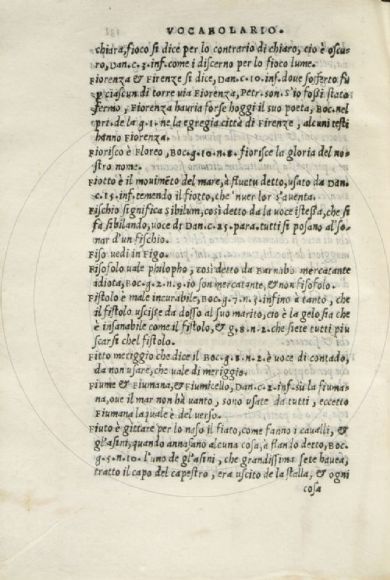 VOCABOLARIO.
chiara, fioco si dice per lo contrario di chiaro, cio è oscu
ro, DAN. c. 3. inf. come i discerno per lo fioco lume.
FIORENZA & Firenze si dice, DAN. c. 10. inf. doue sofferto fu
p ciascun di torre uia Fiorenza, PETR. son. S'io fossi stato
fermo, Fiorenza hauria forse hoggi il suo poeta, BOC. nel
pri. de la g. 1. ne la egregia città di Firenze, alcuni testi
hanno Fiorenza.
FIORISCO è Floreo, BOC. g. 10. n. 8. fiorisce la gloria del no
stro nome.
FIOTTO è il mouimẽto del mare, à fluctu detto, usato da DAN.
c. 15. inf. temendo il fiotto, che 'nuer lor s'auenta.
FISCHIO significa Sibilum, così detto da la uoce istessa, che si
fa sibilando, uoce di DAN. c. 25. para. tutti si posano al so-
nar d'un fischio.
FISO uedi in Figo.
FISOFOLO uale philopho, così detto da Barnabò mercatante
idiota, BOC. g. 2. n. 9. io son mercatante, & non fisofolo.
FISTOLO è male incurabile, BOC. g. 7. n. infino à tanto, che
il fistolo uscisse da dosso al suo marito, cio è la gelosia che
è insanabile come il fistolo, & g. 8. n. 2. che siete tutti piu
scarsi chel fistolo.
FITTO meriggio che dice il BOC. g. 8. n. 2. è uoce di contado,
da non usare, che uale di meriggio.
FIUME & Fiumana, & Fiumicello, DAN. c. 2. inf. su la fiuma-
na, oue il mar non hà uanto, sono usate da tutti, eccetto
Fiumana laquale è del uerso.
FIUTO è gittare per lo naso il fiato, come fanno i caualli, &
gl'asini, quando annasano alcuna cosa, à flando detto, BOC.
g. 5. n. 10. l'uno de gl'asini, che grandissima sete hauea,
tratto il capo del capestro, era uscito de la stalla, & ogni
cosa